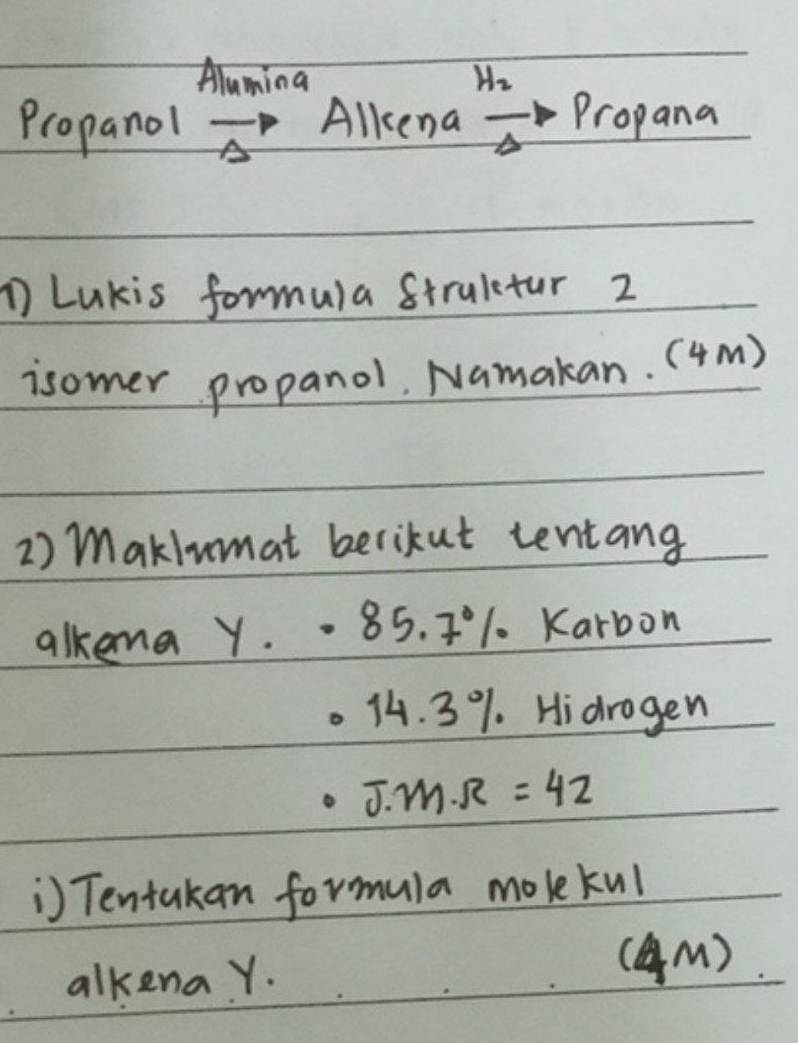 Alumina H₂
Propanol → Alkena → Propana
Δ Δ
1) Lukis formula Struktur 2
isomer propanol. Namakan. (4M)
2) Maklumat berikut tentang
alkena Y. • 85.7% Karbon
• 14.3% Hidrogen
• J.M.R = 42
i) Tentukan formula molekul
alkena Y. (4M)